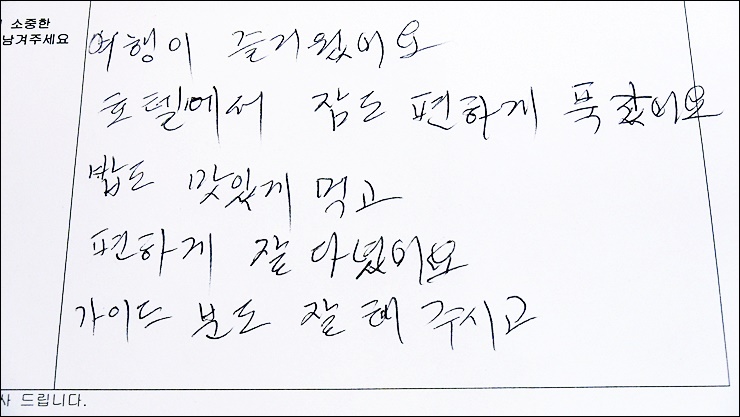 소중한
남겨주세요
여행이 즐거웠어요
호텔에서 잠도 편하게 푹 잤어요
밥도 맛있게 먹고
편하게 잘 다녔어요
가이드 분도 잘 해 주시고
사 드립니다.